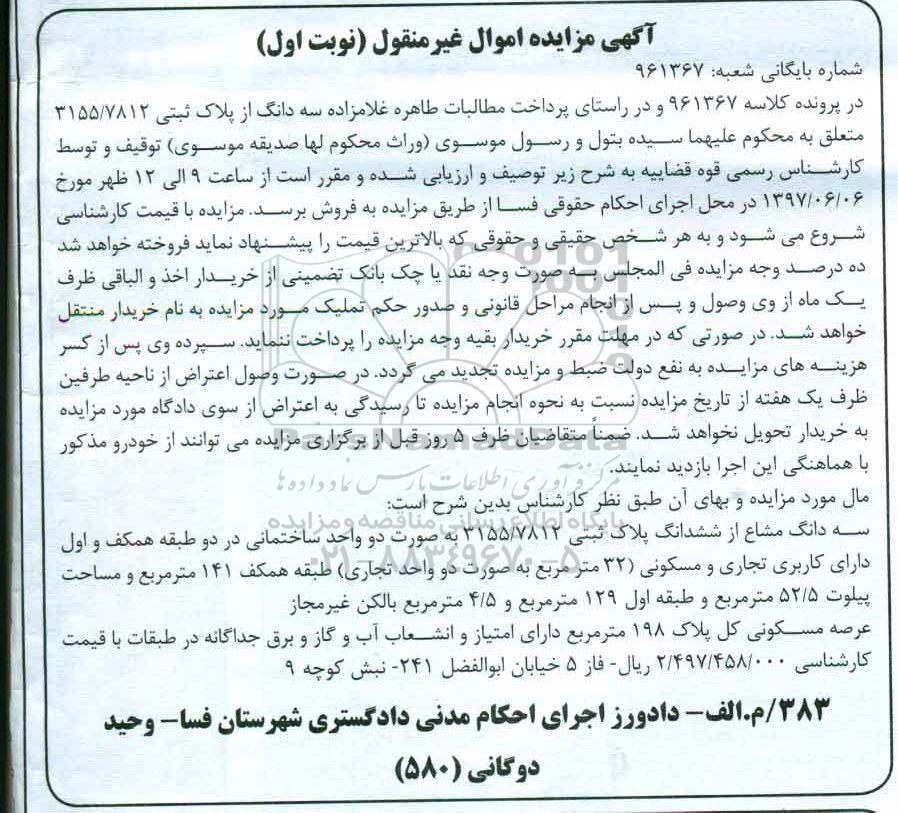 آگهی مزایده اموال غیرمنقول (نوبت اول)
شماره بایگانی شعبه: ۹۶۱۳۶۷
در پرونده کلاسه ۹۶۱۳۶۷ و در راستای پرداخت مطالبات طاهره غلامزاده سه دانگ از پلاک ثبتی ۳۱۵۵/۷۸۱۲
متعلق به محکوم علیهما سیده بتول و رسول موسوی (وراث محکوم لها صدیقه موسوی) توقیف و توسط
کارشناس رسمی قوه قضاییه به شرح زیر توصیف و ارزیابی شده و مقرر است از ساعت ۹ الی ۱۲ ظهر مورخ
۱۳۹۷/۰۶/۰۶ در محل اجرای احکام حقوقی فسا از طریق مزایده به فروش برسد. مزایده با قیمت کارشناسی
شروع می شود و به هر شخص حقیقی و حقوقی که بالاترین قیمت را پیشنهاد نماید فروخته خواهد شد
ده درصد وجه مزایده فی المجلس به صورت وجه نقد یا چک بانک تضمینی از خریدار اخذ و الباقی ظرف
یک ماه از وی وصول و پس از انجام مراحل قانونی و صدور حکم تملیک مورد مزایده به نام خریدار منتقل
خواهد شد. در صورتی که در مهلت مقرر خریدار بقیه وجه مزایده را پرداخت ننماید. سپرده وی پس از کسر
هزینه های مزایده به نفع دولت ضبط و مزایده تجدید می گردد. در صورت وصول اعتراض از ناحیه طرفین
ظرف یک هفته از تاریخ مزایده نسبت به نحوه انجام مزایده تا رسیدگی به اعتراض از سوی دادگاه مورد مزایده
به خریدار تحویل نخواهد شد. ضمناً متقاضیان ظرف ۵ روز قبل از برگزاری مزایده می توانند از خودرو مذکور
با هماهنگی این اجرا بازدید نمایند.
مال مورد مزایده و بهای آن طبق نظر کارشناس بدین شرح است:
سه دانگ مشاع از ششدانگ پلاک ثبتی ۳۱۵۵/۷۸۱۲ به صورت دو واحد ساختمانی در دو طبقه همکف و اول
دارای کاربری تجاری و مسکونی (۳۲ متر مربع به صورت دو واحد تجاری) طبقه همکف ۱۴۱ مترمربع و مساحت
پیلوت ۵۲/۵ مترمربع و طبقه اول ۱۲۹ مترمربع و ۴/۵ مترمربع بالکن غیرمجاز
عرصه مسکونی کل پلاک ۱۹۸ مترمربع دارای امتیاز و انشعاب آب و گاز و برق جداگانه در طبقات با قیمت
کارشناسی ۲/۴۹۷/۴۵۸/۰۰۰ ریال- فاز ۵ خیابان ابوالفضل ۲۴۱- نبش کوچه ۹
۳۸۳/م.الف- دادورز اجرای احکام مدنی دادگستری شهرستان فسا- وحید
دوگانی (۵۸۰)
ParsNamadData
مرکز فرآوری اطلاعات پارس نماد داده ها
پایگاه اطلاع رسانی مناقصه و مزایده
۰۲۱-۸۸۳۴۹۶۷۰-۵